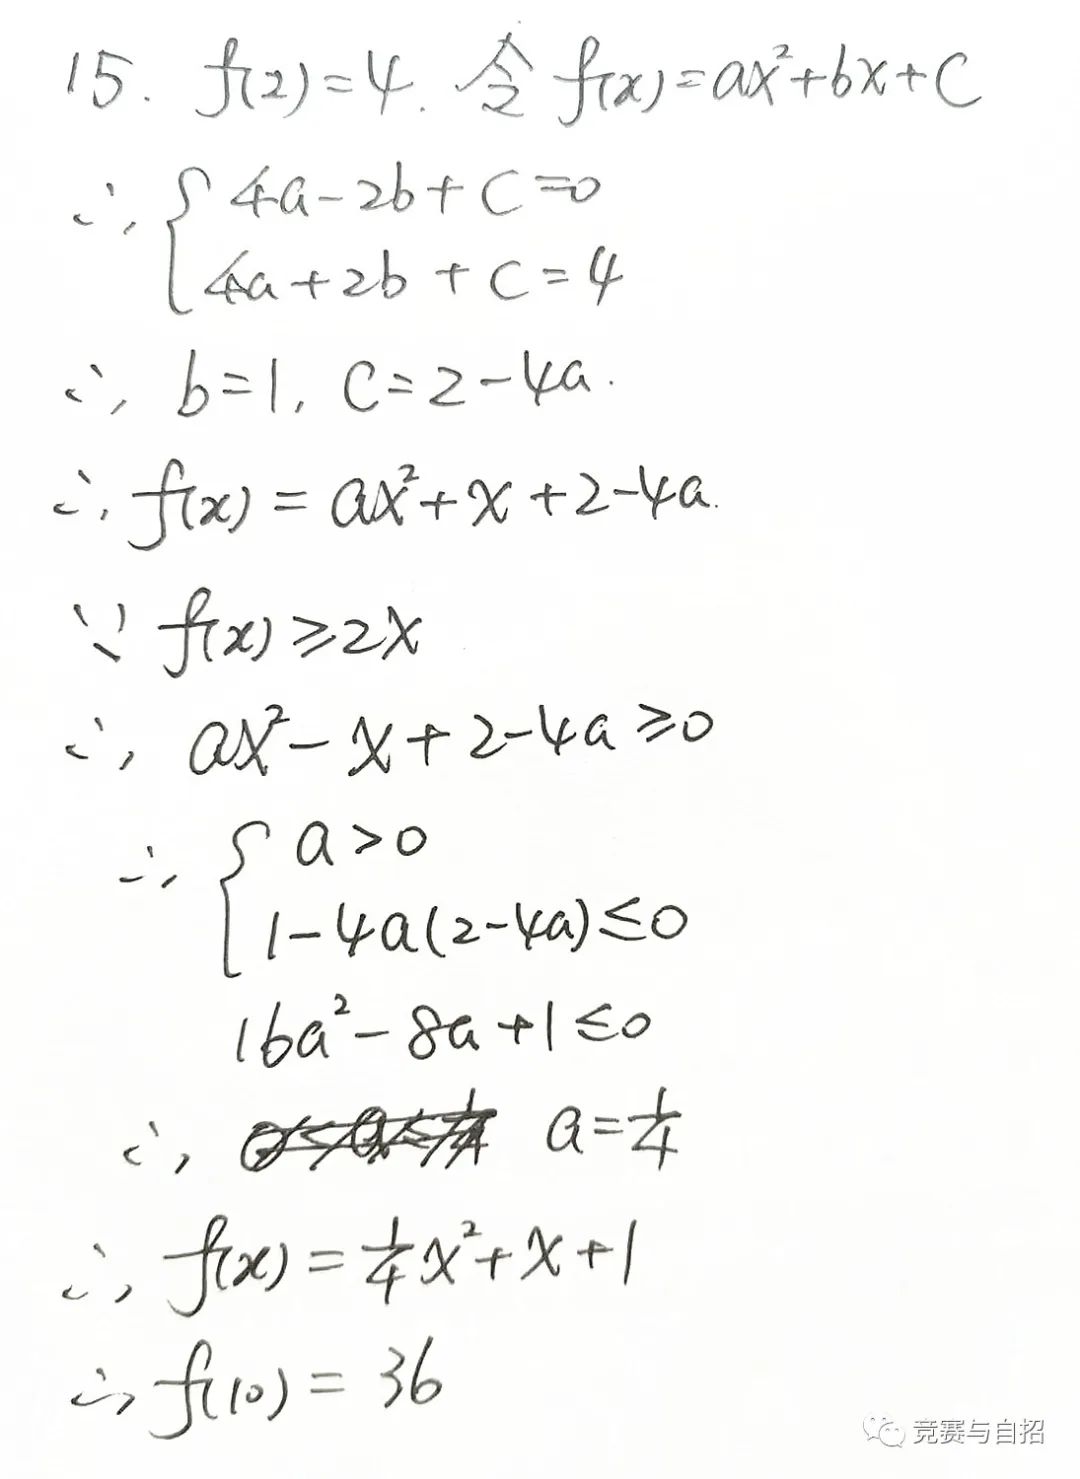 15. f(2)=4. 令 f(x)=ax²+bx+C
∴ { 4a-2b+C=0
4a+2b+C=4
∴ b=1, C=2-4a.
∴ f(x)=ax²+x+2-4a.
∵ f(x)≥2x
∴ ax²-x+2-4a≥0
∴ { a>0
1-4a(2-4a)≤0
16a²-8a+1≤0
∴ a=1/4
∴ f(x)=1/4x²+x+1
∴ f(10)=36
竞赛与自招